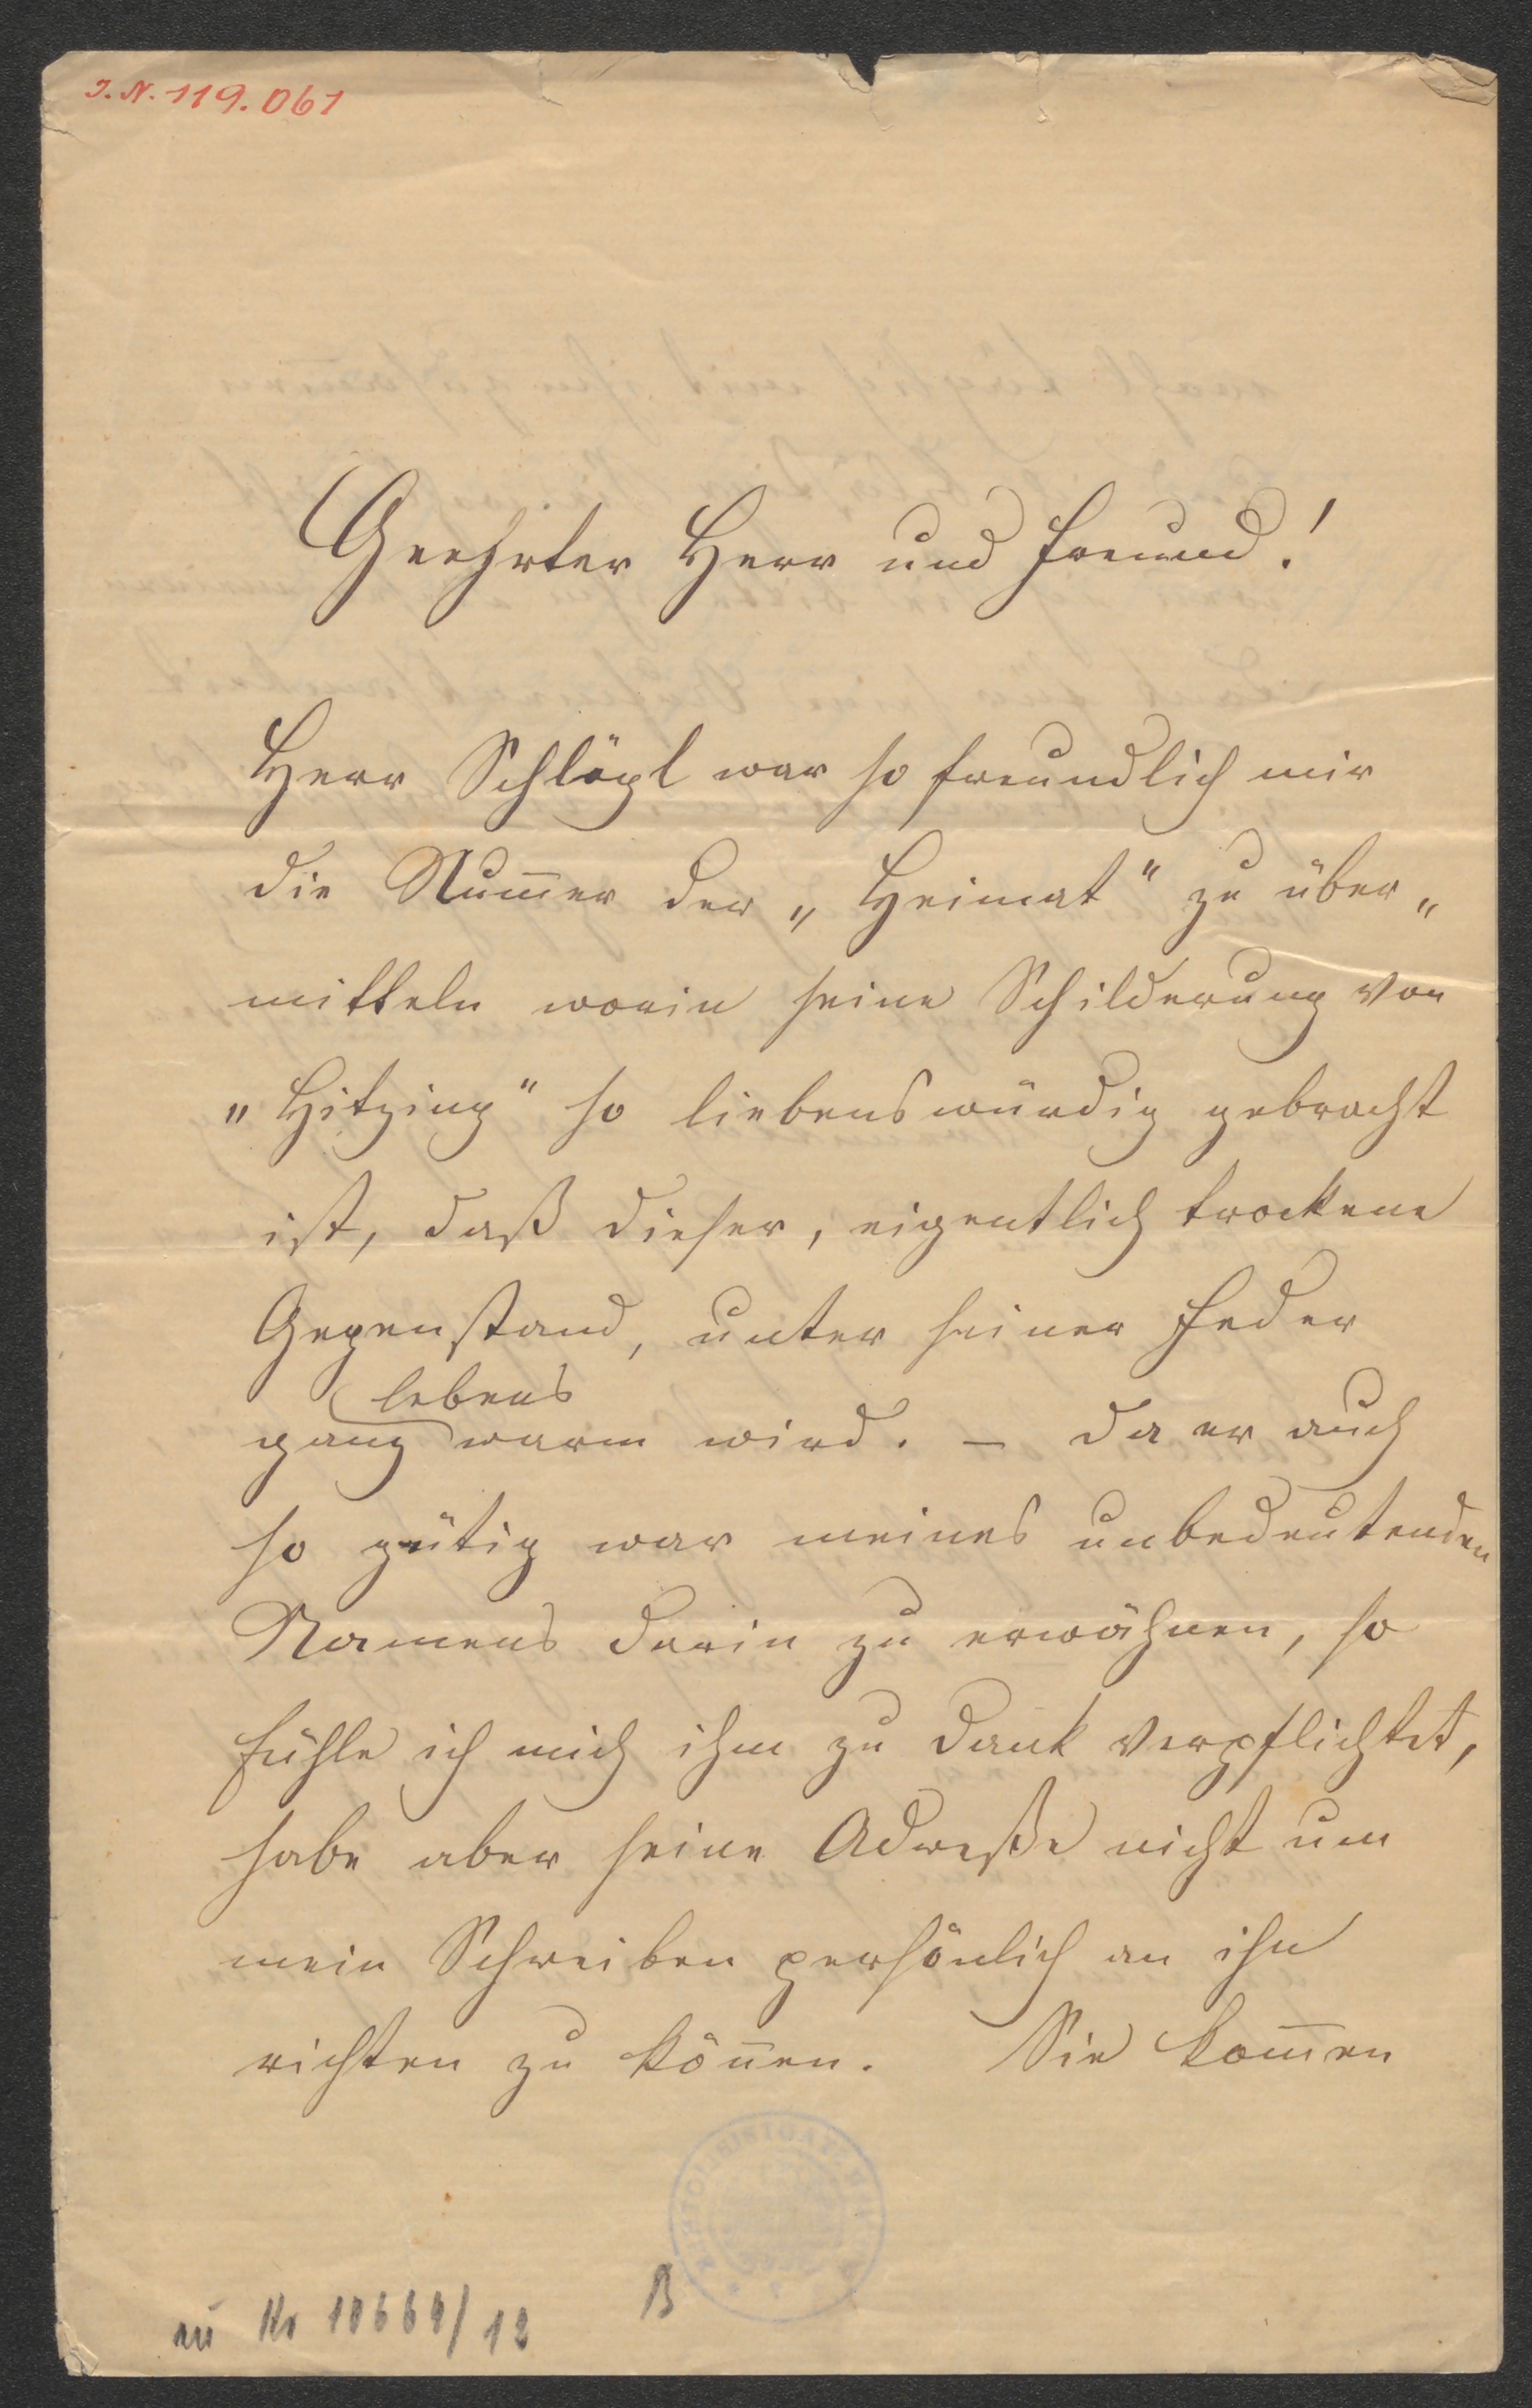 I.N. 119.061
Geehrter Herr und Freund!
Herr Schlögl war so freundlich mir
die Num̄er der „Heimat" zu über„
mitteln worin seine Schilderung von
„Hitzing" so liebenswürdig gebracht
ist, daß dieser, eigentlich trockene
Gegenstand, unter seiner Feder
lebens
ganz warm wird. – Da er auch
so gütig war meines unbedeutenden
Namens darin zu erwähnen, so
fühle ich mich ihm zu Dank verpflichtet,
habe aber seine Adreße nicht um
mein Schreiben persönlich an ihn
richten zu kön̄en. Sie kom̄en
B